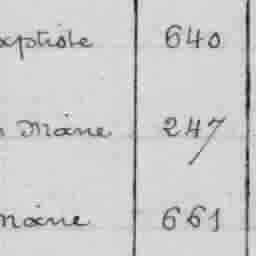 aptiste 640
Marie 247
Marie 661